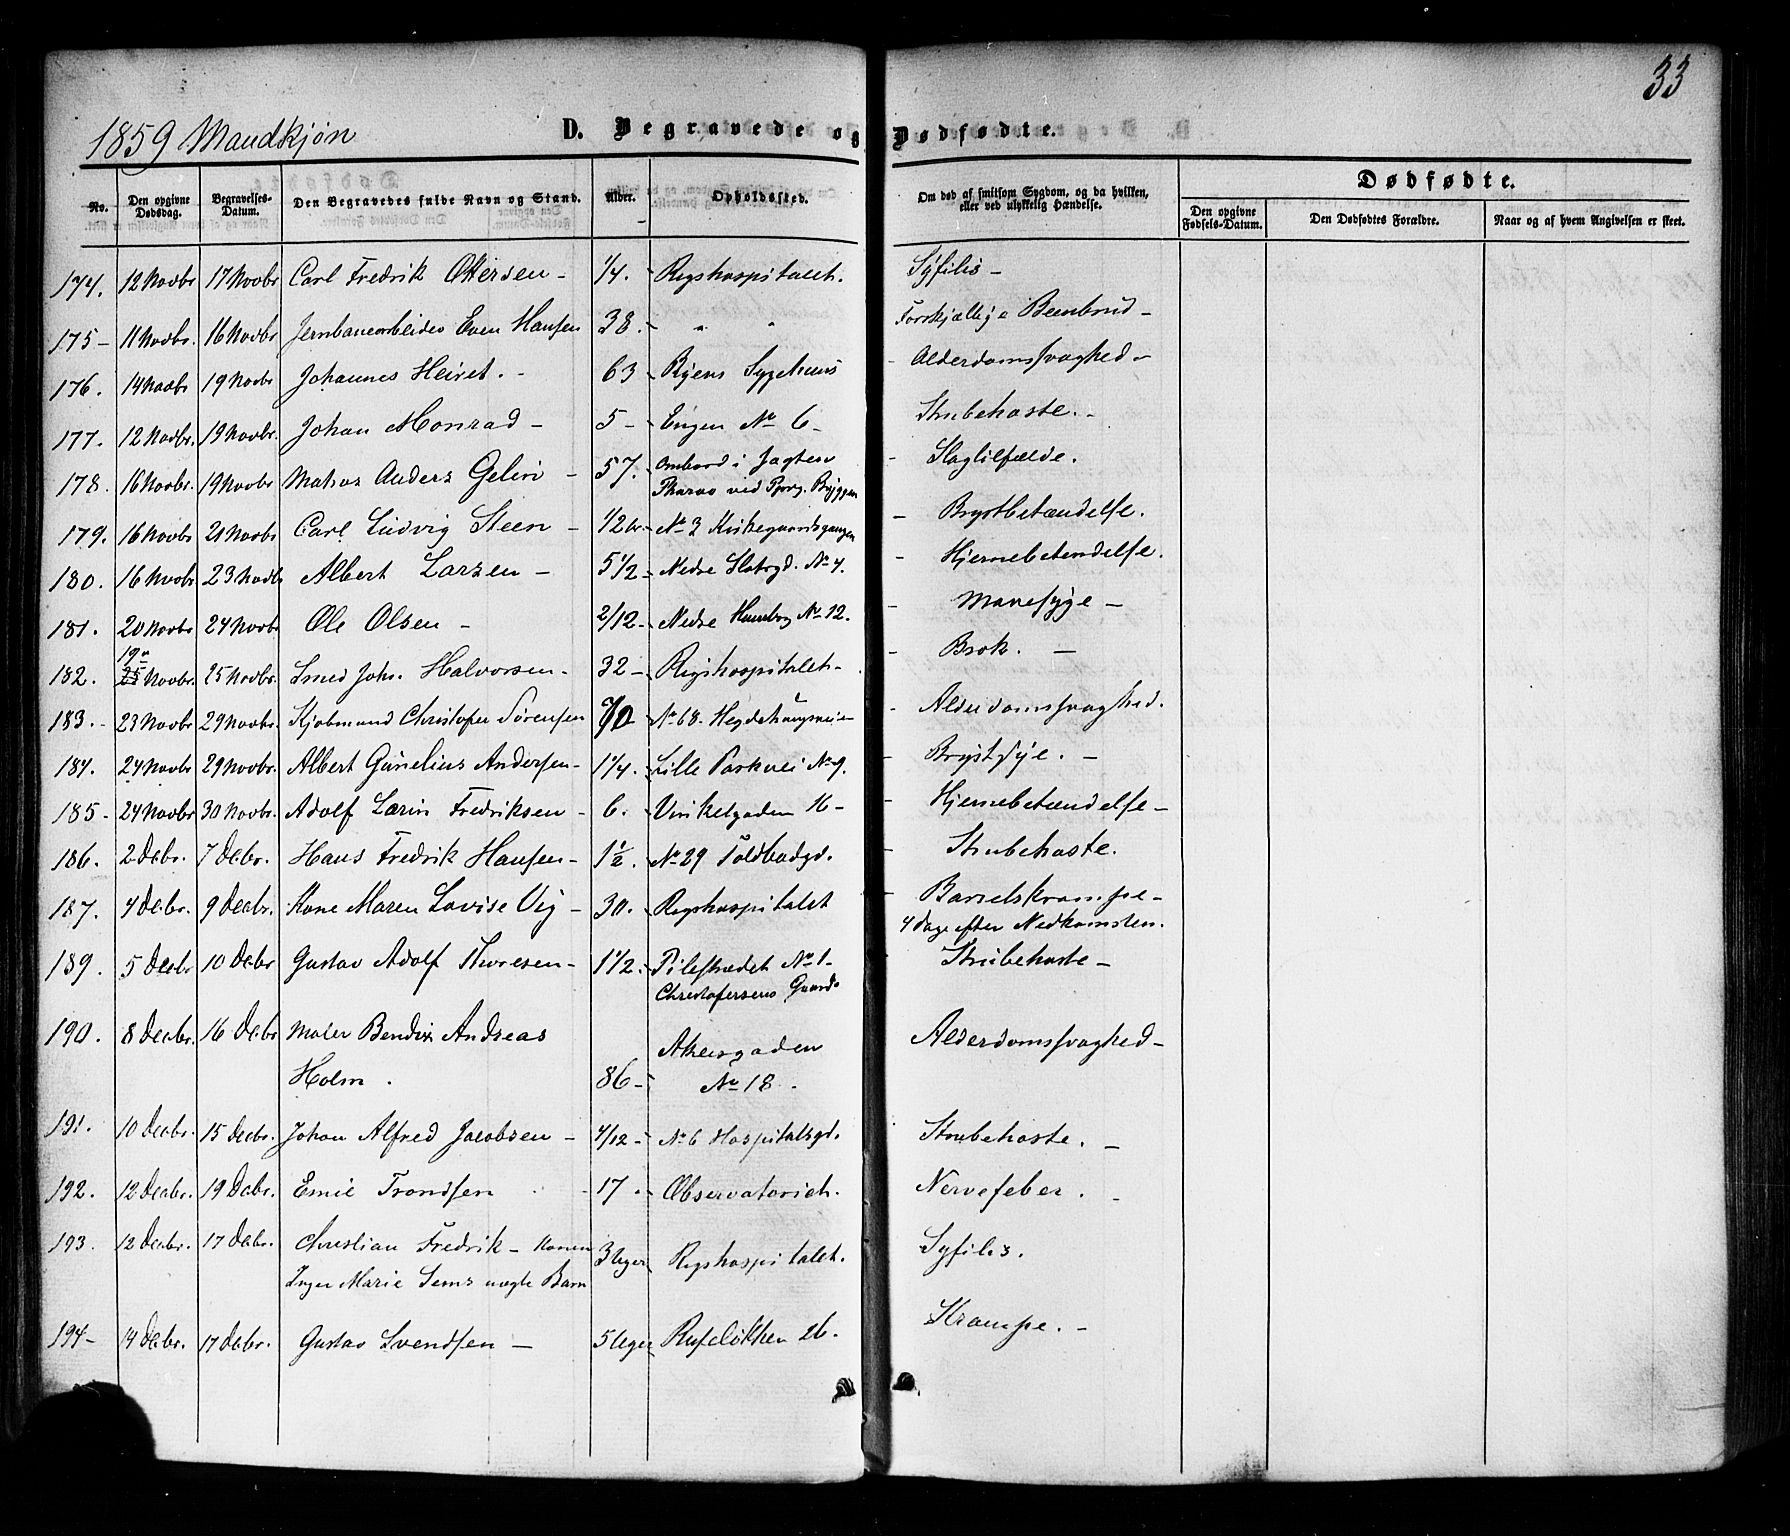 33
1859 Mandkjøn
D. Begravede og Dødfødte.
No. | Den opgivne Dødsdag. | Begravelses-Datum. | Den Begravedes fulde Navn og Stand. | Alder. | Opholdssted. | Om død af smitsom Sygdom, og da hvilken, eller ved ulykkelig Hændelse. | Dødfødte. | Den opgivne Fødsels-Datum. | Den Dødfødtes Forældre. | Naar og af hvem Angivelsen er skeet.
174. 12 Novbr 17 Novbr Carl Fredrik Ottersen - 1/4. Rigshospitalet. Syfilis -
175 - 11 Novbr. 16 Novbr Jernbanearbeider Even Hansen 38. " " Forskjællige Beenbrud -
176. 14 Novbr. 19 Novbr Johannes Heiret. - 63 Byens Sygehuus - Alderdomssvaghed -
177. 12 Novbr. 19 Novbr. Johan Monrad - 5 - Engen No 6 - Strubehoste. -
178. 16 Novbr. 19 Novbr Matros Anders Gelin - 57. ombord i Jagten - Slagtilfælde.
Pharao ved Bjørg. Bryggen
179. 16 Novbr 21 Novbr Carl Ludvig Steen - 1/2 No 3 Kirkegaardsgangen - Brystbetændelse.
180. 16 Novbr 23 Novb Albert Larsen - 5 1/2 - Nedre Slotsgd. No 4. - Hjernebetendelse.
181. 20 Novbr 24 Novbr Ole Olsen - 2/12 - Nedre No 12. - Mavesyge -
19n
182. 25 Novbr. 25 Novbr. Smed Johs. Halvorsen - 32 - Rigshospitalet - - Brok. -
183. - 23 Novbr 29 Novbr. Kjøbmand Christofer Sørensen 70 - No 68. Hegdehaugsveien - Alderdomssvaghed.
184. 24 Novbr 29 Novbr. Albert Gunelius Andersen - 1 1/4. Lille Parkvei No 9. - Brystsyge. -
185 - 24 Novbr 30 Novbr. Adolf Larin Fredriksen - 6. Vinkelgaden 16 - - Hjernebetændelse -
186. 2 Decbr. 7 Decbr. Hans Fredrik Hansen - 1 1/2. No 29 Toldbodgd. - Strubehoste.
187. 4 Decbr. 9 Decbr. Kone Maren Lovise Vig - 30. Rigshospitalet - Barselskrampe -
4 Dage efter Nedkomsten.
189. 5 Decbr 10 Decbr Gustav Adolf Thoresen - 1 1/2. Pilestrædet No 1 - Strubehoste -
Christofersens Gaard
190. 8 Decbr. 16 Decbr Maler Bendix Andreas Alderdomssvaghed -
Holm. 86 - Akersgaden
No 18.
191. 10 Decbr. 15 Decbr. Johan Alfred Jacobsen - 4/12 - No 6 Hospitalsgd. Strubehoste. -
192. 12 Decbr. 19 Decbr. Emil Trondsen - 17. - Observatoriet. Nervefeber. -
193. 12 Decbr. 17 Decbr. Christian Fredrik - Konen 3 Uger Rigshospitalet. Syfilis.
Inger Marie Sems uægte Barn
194 - 14 Decbr. 17 Decbr. Gustav Svendsen - 5 Uger Ruseløkken 26. Krampe. -